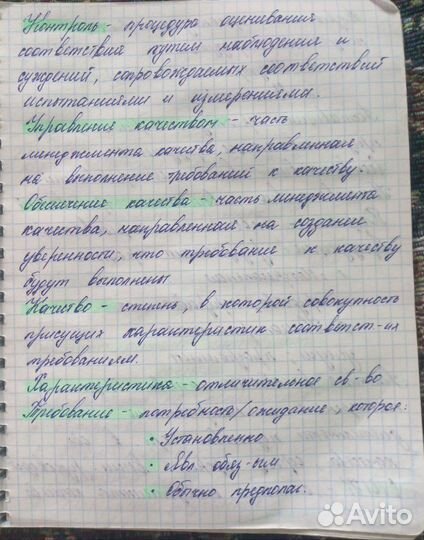 Контроль - процедура оценивания
соответствий путём наблюдения и
суждений, сопровождаемых соответствий
испытаниями и измерениями.
Управление качеством - часть
менеджмента качества, направленная
на выполнение требований к качеству.
Обеспечение качества - часть менеджмента
качества, направленная на создание
уверенности, что требование к качеству
будут выполнены
Качество - степень, в которой совокупность
присущих характеристик соответст-их
требованиям.
Характеристика - отличительное св-во
Требование - потребность/ожидание, которая:
• Установленно
• Явл. обяз-ым
• Обычно предполаг.
Avito